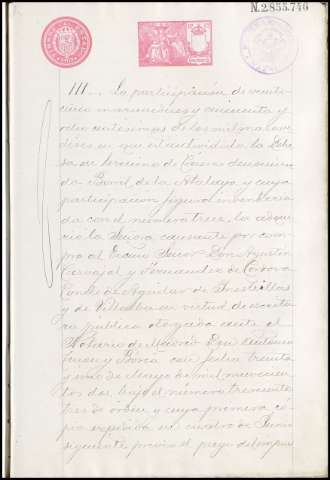 N. 2.855.746
III.... La participación de veinti-
cinco maravedises y cincuenta y
ocho centésimas de los mil marave-
dises en que está dividida la Dehe-
sa en término de Cáceres denomina-
da Borril de la Atalaya y cuya
participación figura inventaria-
da con el número trece, la adqui-
rió la Señora causante por com-
pra al Excmo Señor Don Agustín
Carvajal y Fernandez de Cordova
Conde de Aguilar de Inestrillas
y de Villalba en virtud de escritu-
ra pública otorgada ante el
Notario de Madrid Don
y García con fecha treinta
y uno de Mayo de mil novecien-
tos dos, bajo el número trescientos
tres de órden y cuya primera có-
pia expedida en cuatro de Junio
siguiente previo el pago del impues